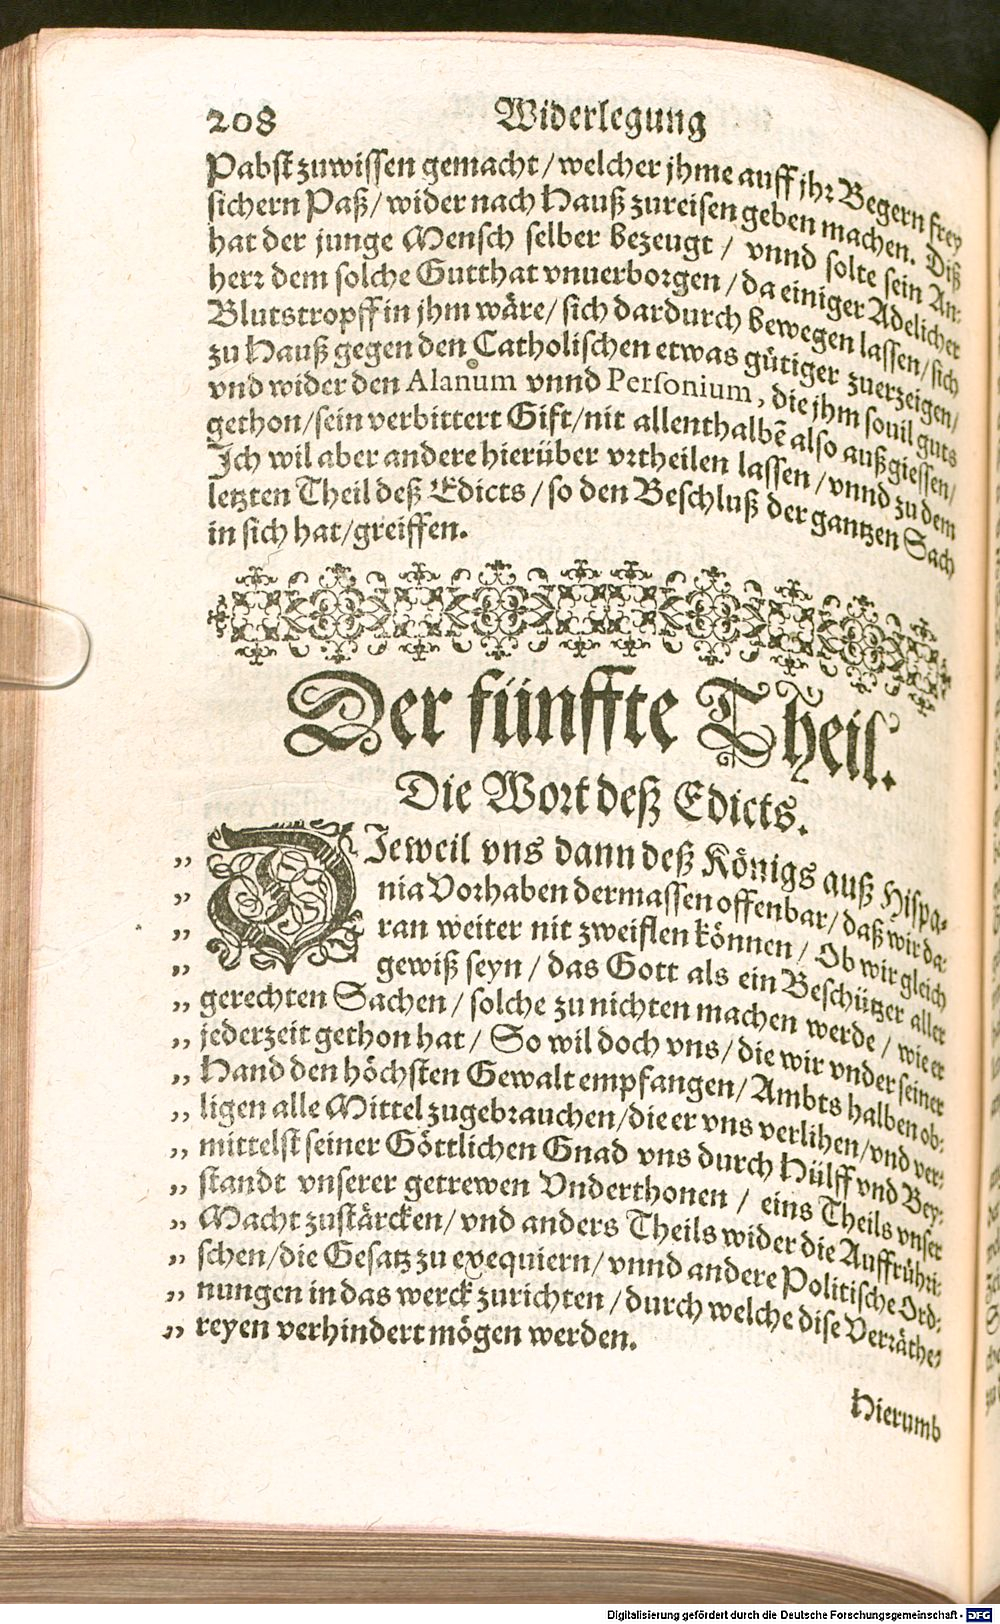 208 Widerlegung
Pabst zuwissen gemacht / welcher jhme auff jhr Begern frey
sichern Paß / wider nach Hauß zureisen geben machen. Diß
hat der junge Mensch selber bezeugt / vnnd solte sein An⸗
herr dem solche Gutthat vnuerborgen / da einiger Adelicher
Blutstropff in jhm wäre / sich dardurch bewegen lassen / sich
zu Hauß gegen den Catholischen etwas gütiger zuerzeigen /
vnd wider den Alanum vnnd Personium, die jhm souil guts
gethon / sein verbittert Gift / nit allenthalbē also außgiessen /
Ich wil aber andere hierüber vrtheilen lassen / vnnd zu dem
letzten Theil deß Edicts / so den Beschluß der gantzen Sach
in sich hat / greiffen.
Der fünffte Theil.
Die Wort deß Edicts.
„ DJeweil vns dann deß Königs auß Hispa⸗
„ nia Vorhaben dermassen offenbar / daß wir da⸗
„ ran weiter nit zweiflen können / Ob wir gleich
„ gewiß seyn / das Gott als ein Beschützer aller
„ gerechten Sachen / solche zu nichten machen werde / wie er
„ jederzeit gethon hat / So wil doch vns / die wir vnder seiner
„ Hand den höchsten Gewalt empfangen / Ambts halben ob⸗
„ ligen alle Mittel zugebrauchen / die er vns verlihen / vnd ver⸗
„ mittelst seiner Göttlichen Gnad vns durch Hülff vnd Bey⸗
„ standt vnserer getrewen Vnderthonen / eins Theils vnser
„ Macht zustärcken / vnd anders Theils wider die Auffrühri⸗
„ schen / die Gesatz zu exequiern / vnnd andere Politische Ord⸗
„ nungen in das werck zurichten / durch welche dise Verräthe⸗
„ reyen verhindert mögen werden.
Hierumb
Digitalisierung gefördert durch die Deutsche Forschungsgemeinschaft - DFG